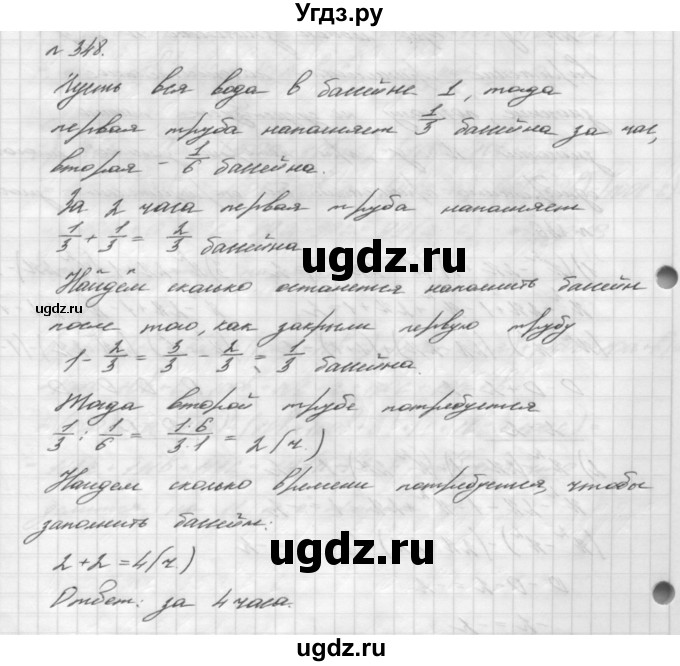 Угдз.ру
№ 348.
Пусть вся вода в басейне 1, тогда
первая труба наполняет 1/3 басейна за час,
вторая - 1/6 басейна.
За 2 часа первая труба наполняет
1/3 + 1/3 = 2/3 басейна
Найдём сколько останется наполнить басейн
после того, как закрыли первую трубу
1 - 2/3 = 3/3 - 2/3 = 1/3 басейна.
Тогда второй трубе потребуется
1/3 : 1/6 = 1·6/3·1 = 2 (ч.)
Найдем сколько времени потребуется, чтобы
заполнить басейн:
2 + 2 = 4 (ч.)
Ответ: за 4 часа.
ugdz.ru
ugdz.ru
ugdz.ru
ugdz.ru
ugdz.ru
ugdz.ru